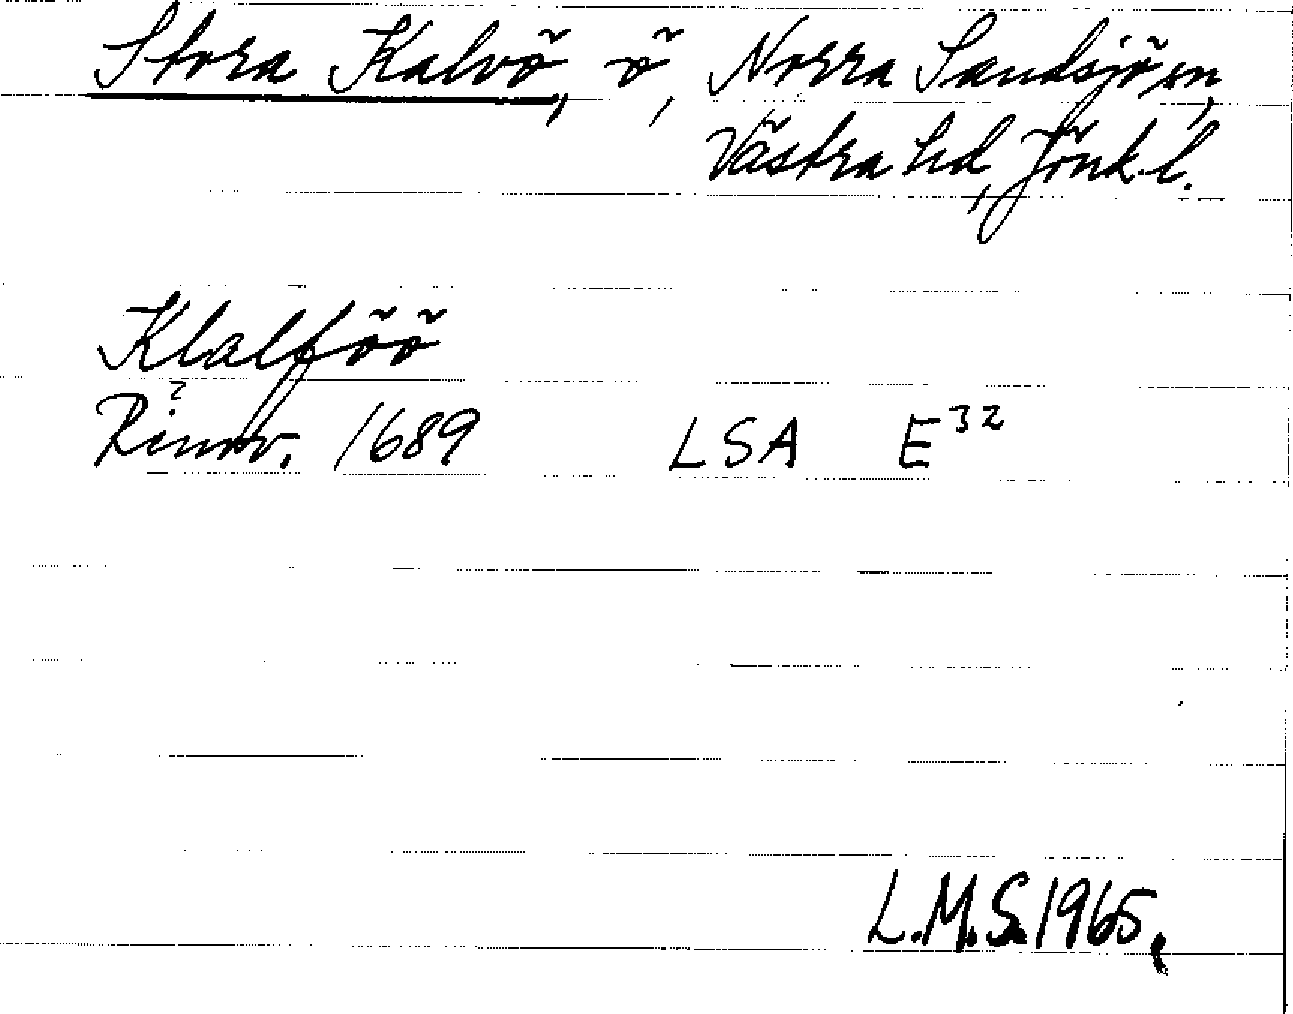 Stora Kalvö, ö, Norra Sandsjö sn,
Västra hd, Jönk. l.
Klalföö
?
1689 LSA E32
L.M.S. 1965.